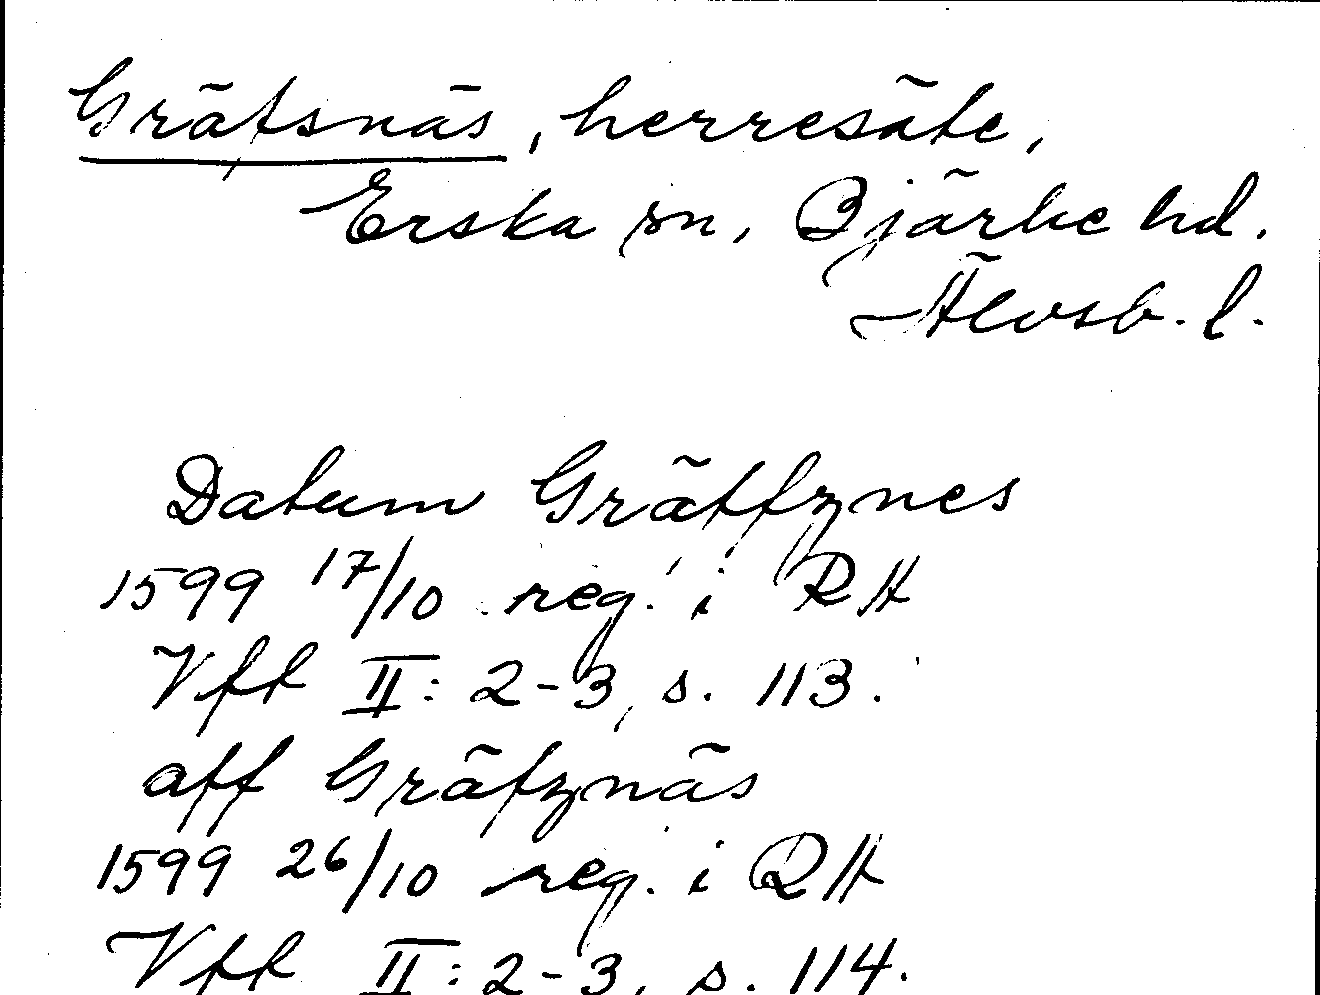 Gräfsnäs, herresäte,
Erska sn, Bjärke hd.
Älvsb. l.
Datum Gräffznes
1599 17/10 reg. i RA
Vff II: 2-3, s. 113.
aff Gräfznäs
1599 26/10 reg. i RA
Vff II: 2-3, s. 114.